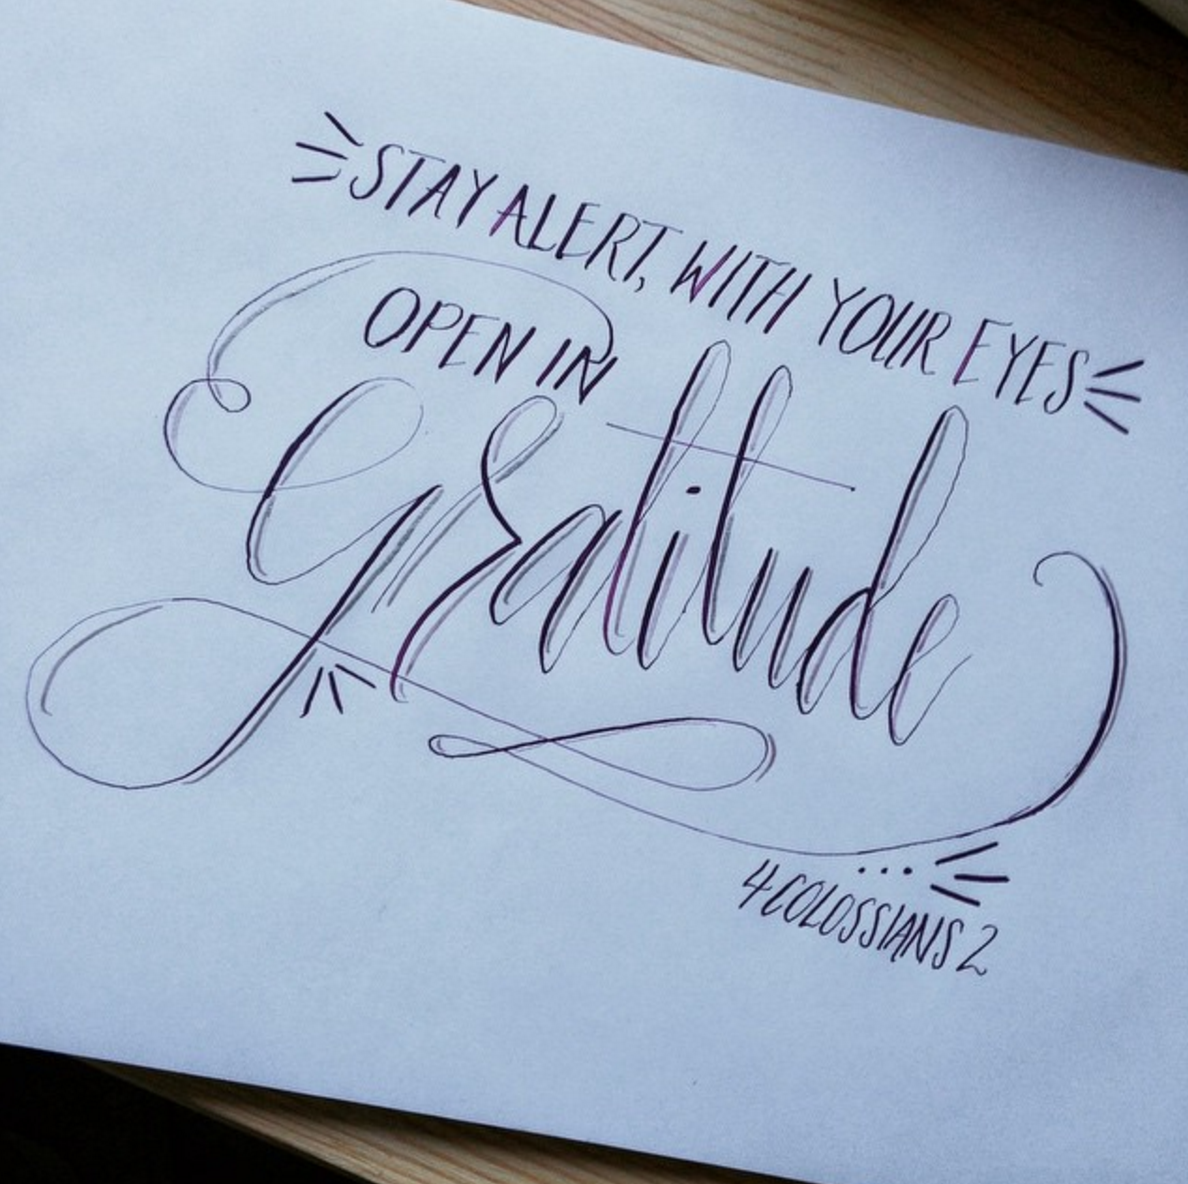 STAY ALERT, WITH YOUR EYES
OPEN IN
Gratitude
...
4 COLOSSIANS 2